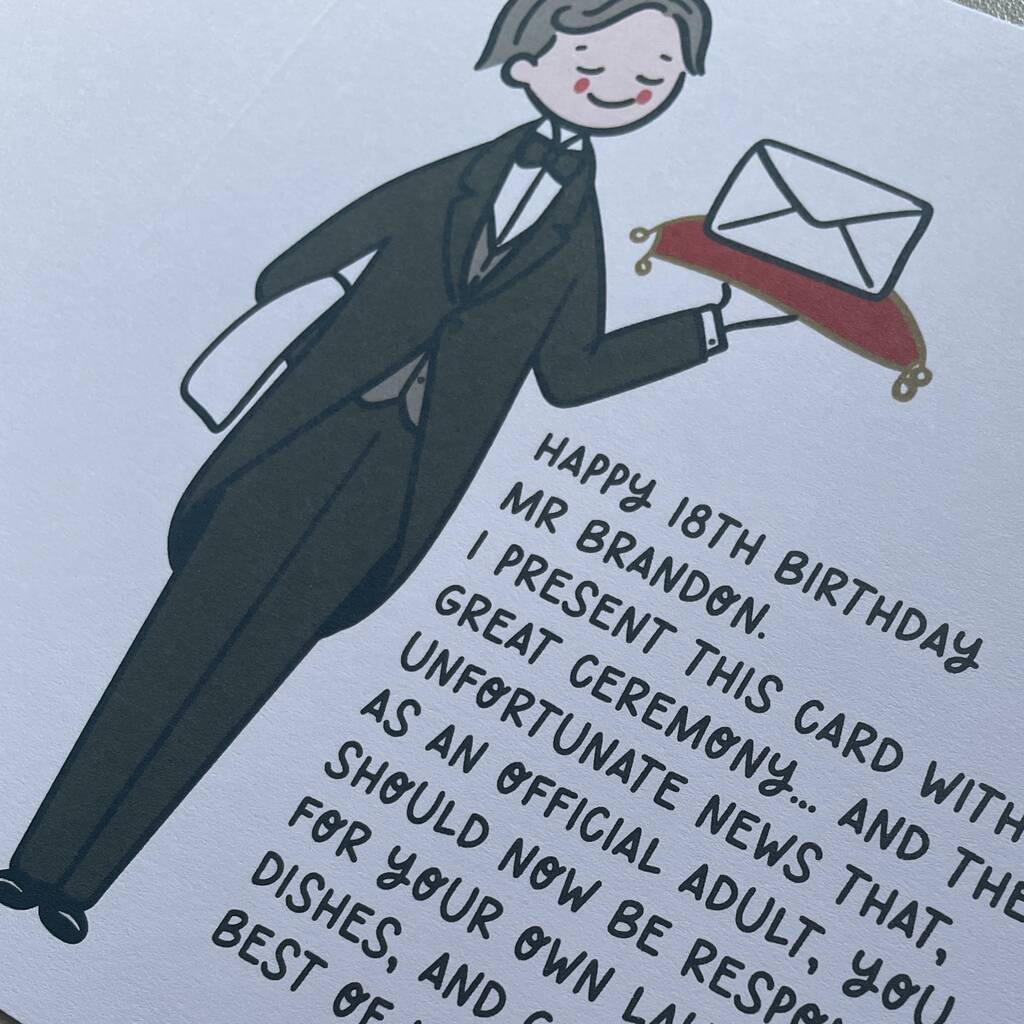 HAPPY 18TH BIRTHDAY
MR BRANDON.
I PRESENT THIS CARD WITH
GREAT CEREMONY... AND THE
UNFORTUNATE NEWS THAT,
AS AN OFFICIAL ADULT, YOU
SHOULD NOW BE
FOR YOUR OWN
DISHES, AND
BEST OF